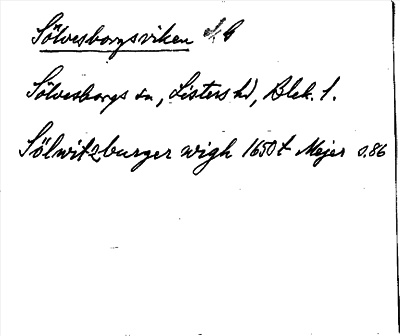 Sölvesborgsviken
Sölvesborgs sn, Listers hd, Blek. l.
Sölwitzburger wigh 1650t Mejer s.86